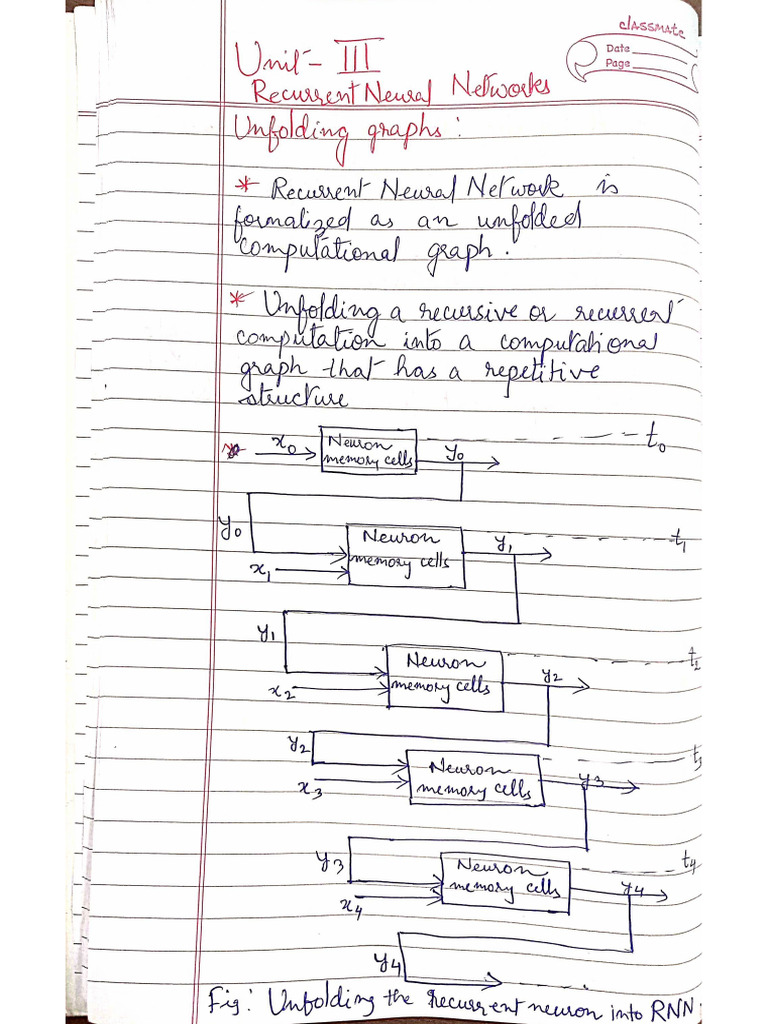 classmate
Date
Page
Unit - III
Recurrent Neural Networks
Unfolding graphs :
* Recurrent Neural Network is
formalized as an unfolded
computational graph.
* Unfolding a recursive or recurrent
computation into a computational
graph that has a repetitive
structure
* x0 Neuron memory cells y0 t0
y0 Neuron memory cells y1 t1
x1
y1 Neuron memory cells y2 t2
x2
y2 Neuron memory cells y3 t3
x3
y3 Neuron memory cells y4 t4
x4
y4
Fig: Unfolding the recurrent neuron into RNN